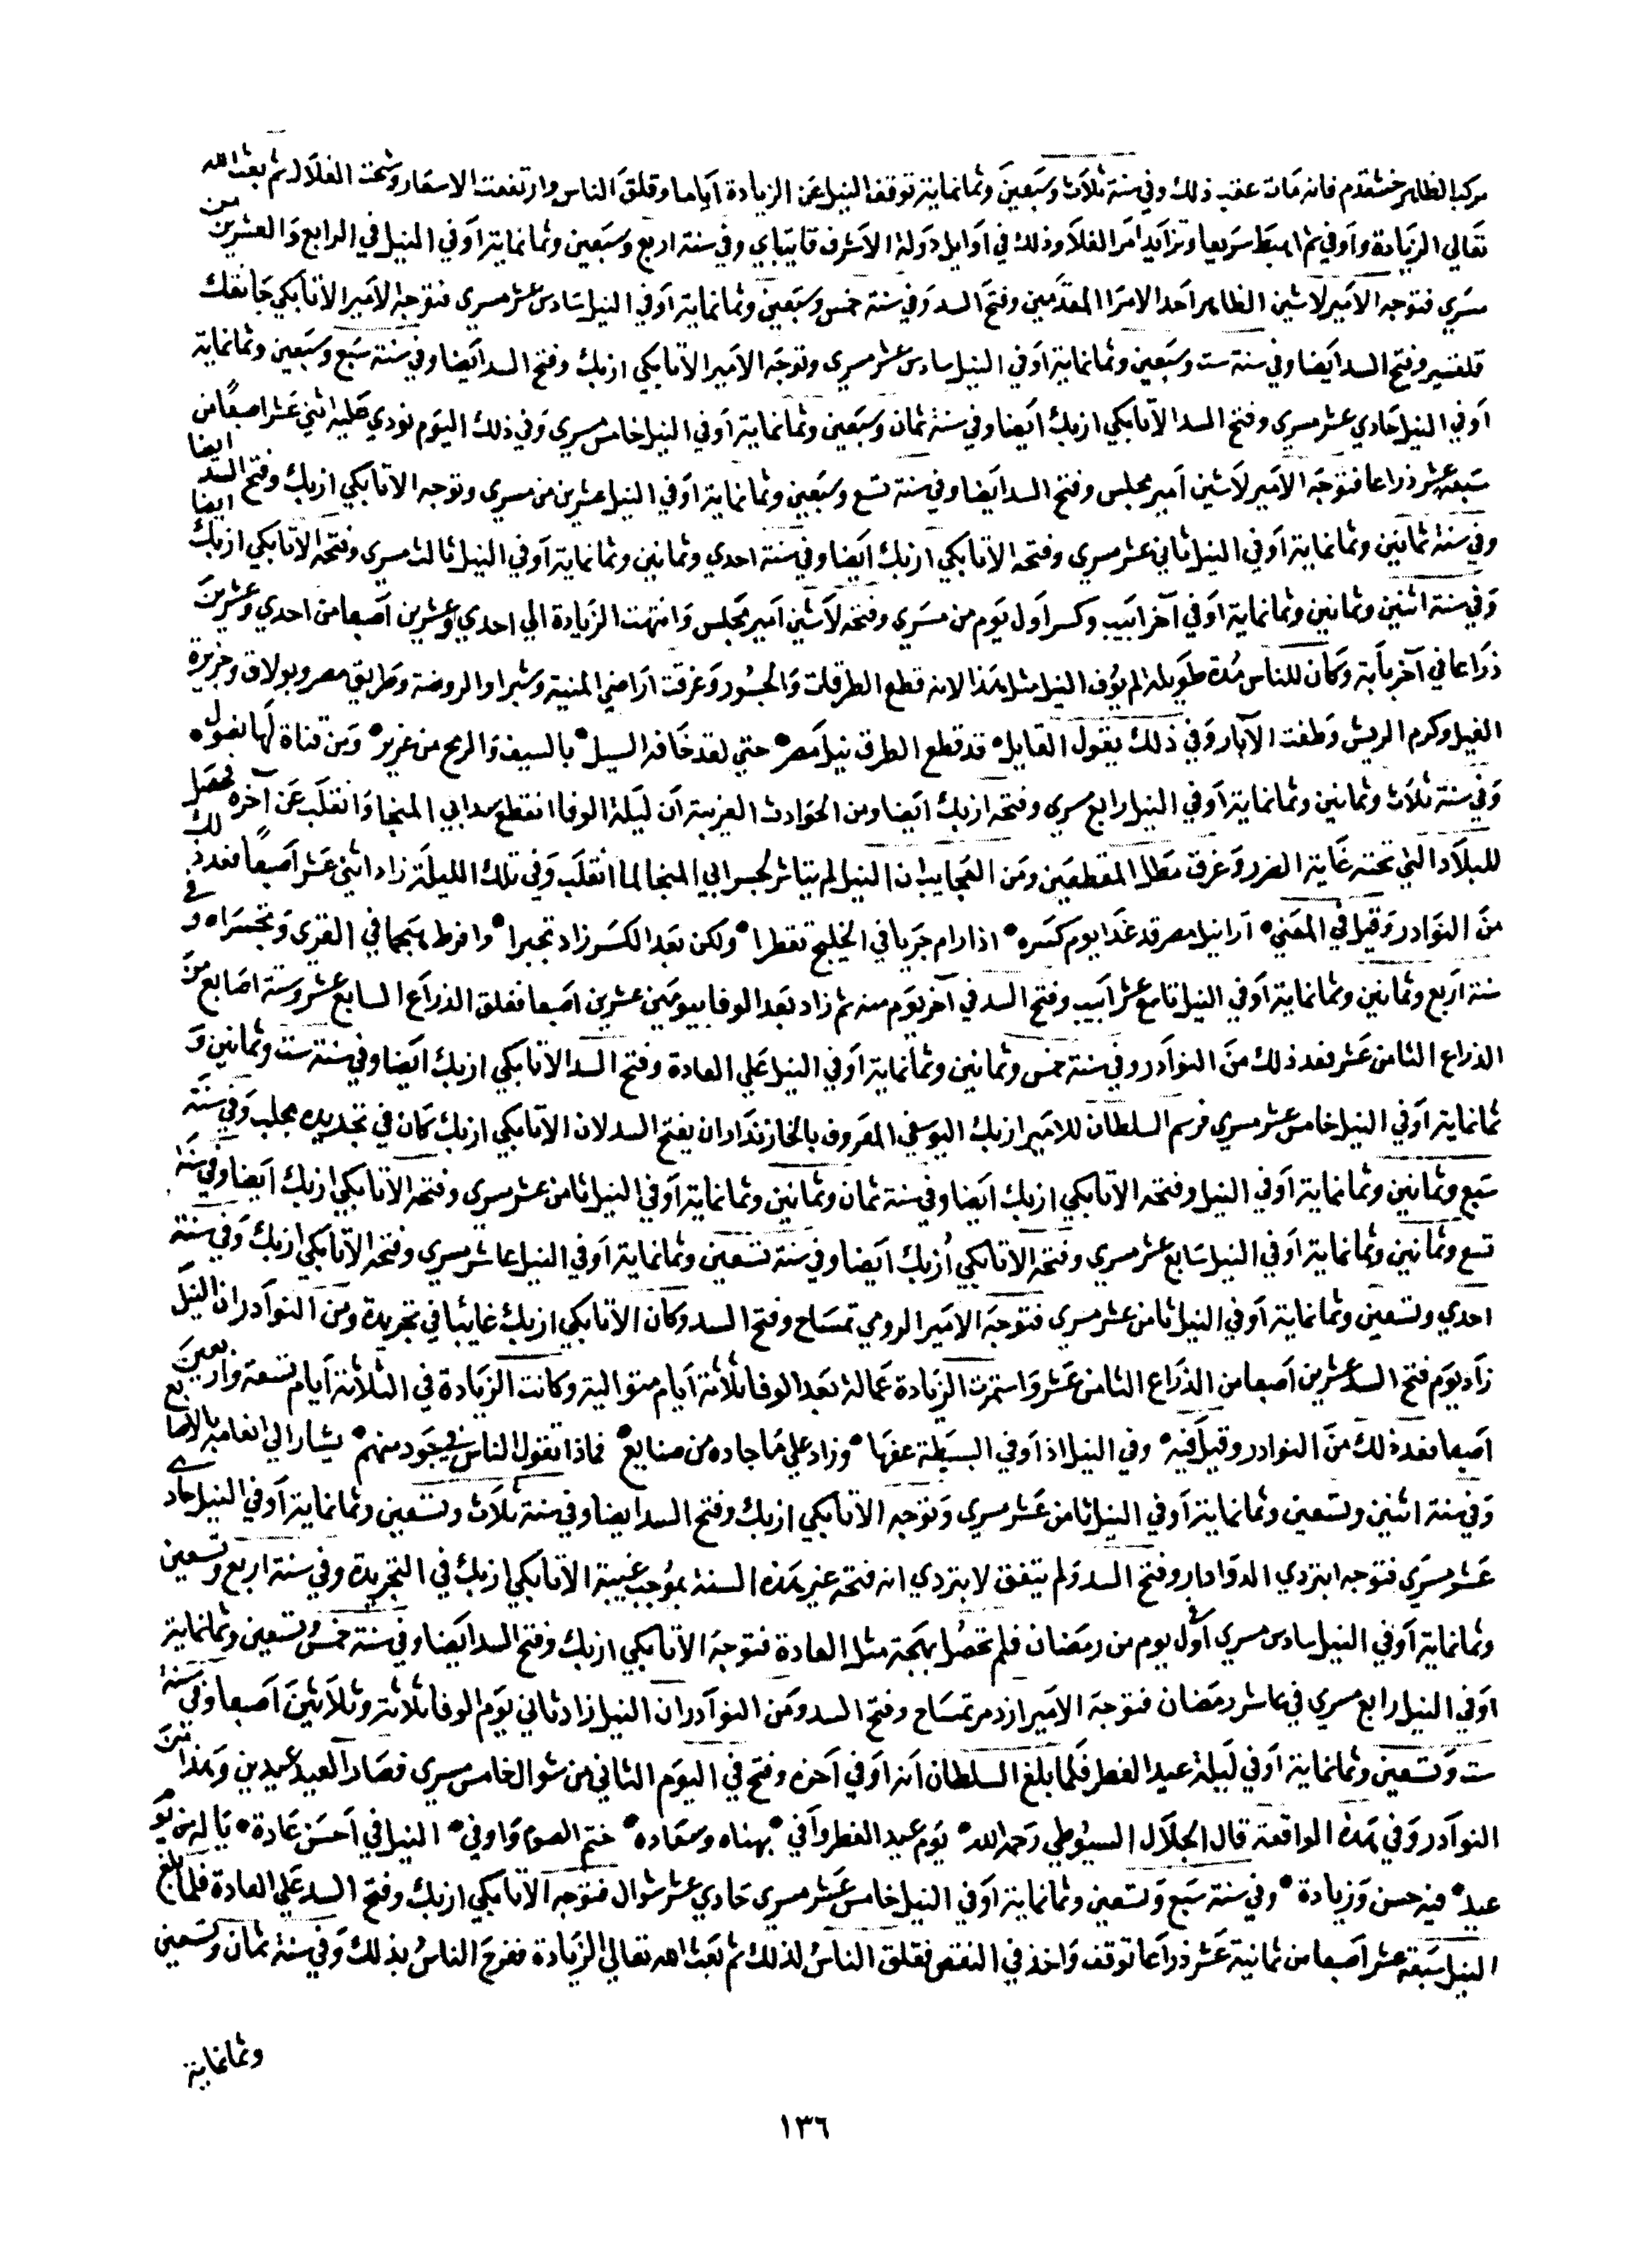 مركب الظاهر خشقدم فانه مات عقب ذلك وفي سنة ثلاث وسبعين وثمانماية توقف النيل عن الزيادة اياما وقلق الناس وارتفعت الاسعار وشحت الغلال ثم بعث الله
تعالي الزيادة واوفي ثم الهبط سريعا وتزايد امر الغلا وذلك في اوايل دولة الاشرف قايتباي وفي سنة اربع وسبعين وثمانماية اوفي النيل في الرابع والعشرين من
مسري فتوجه الامير لاشين الظاهر احد الامرا المقدمين وفتح السد وفي سنة خمس وسبعين وثمانماية اوفي النيل سادس عشر مسري فتوجه الامير الاتابكي جانبك
قلقسير وفتح السد ايضا وفي سنة ست وسبعين وثمانماية اوفي النيل سادس عشر مسري وتوجه الامير الاتابكي ازبك وفتح السد ايضا وفي سنة سبع وسبعين وثمانماية
اوفي النيل حادي عشر مسري وفتح السد الاتابكي ازبك ايضا وفي سنة ثمان وسبعين وثمانماية اوفي النيل خامس مسري وفي ذلك اليوم نودي عليه اثني عشر اصبعا من
سبعة عشر ذراعا فتوجه الامير لاشين امير مجلس وفتح السد ايضا وفي سنة تسع وسبعين وثمانماية اوفي النيل عشرين من مسري وتوجه الاتابكي ازبك وفتح السد ايضا
وفي سنة ثمانين وثمانماية اوفي النيل ثاني عشر مسري وفتحه الاتابكي ازبك ايضا وفي سنة احدي وثمانين وثمانماية اوفي النيل ثالث مسري وفتحه الاتابكي ازبك ايضا
وفي سنة اثنين وثمانين وثمانماية اوفي آخر ابيب وكسر اول يوم من مسري وفتحه لاشين امير مجلس وانتهت الزيادة الي احدي وعشرين اصبعا من احدي وعشرين
ذراعا في آخر بابة وكان للناس مدة طويلة لم يوف النيل مثل هذا الانه قطع الطرقات والجسور وغرقت اراضي المنية وشبرا والروضة وطريق مصر وبولاق وجزيرة
الفيل وكرم الريش وطفت الآبار وفي ذلك يقول القايل • قد قطع الطرق نيل مصر • حتي لقد خافه السبيل • بالسيف والرمح من غزير • ومن قناة لها نصول •
وفي سنة ثلاث وثمانين وثمانماية اوفي النيل رابع مسري وفتحه ازبك ايضا ومن الحوادث الغريبة ان ليلة الوفا انقطع سد ابي المنجا وانقلب عن آخره فحصل
للبلاد التي تحته غاية الضرر وغرق مطل المقطعين ومن العجايب ان النيل لم يتاثر لجسر ابي المنجا لما انقلب وفي تلك الليلة زاد اثني عشر اصبعا فعد ذلك
من النوادر وقيل في المعني • ارا نيل مصر قد غدا يوم كسره • اذا رام جريا في الخليج تقطرا • ولكن بعد الكسر زاد تجبرا • وافرط هجما في القري وتجسرا • وفي
سنة اربع وثمانين وثمانماية اوفي النيل تاسع عشر ابيب وفتح السد في آخر يوم منه ثم زاد بعد الوفا بيومين عشرين اصبعا فغلق الذراع السابع عشر وستة اصابع من
الذراع الثامن عشر فعد ذلك من النوادر وفي سنة خمس وثمانين وثمانماية اوفي النيل علي العادة وفتح السد الاتابكي ازبك ايضا وفي سنة ست وثمانين و
ثمانماية اوفي النيل خامس عشر مسري فرسم السلطان للامير ازبك اليوسفي المعروف بالخازندار ان يفتح السد لان الاتابكي ازبك كان في تجريده بحلب وفي سنة
سبع وثمانين وثمانماية اوفي النيل وفتحه الاتابكي ازبك ايضا وفي سنة ثمان وثمانين وثمانماية اوفي النيل ثامن عشر مسري وفتحه الاتابكي ازبك ايضا وفي سنة
تسع وثمانين وثمانماية اوفي النيل سابع عشر مسري وفتحه الاتابكي أزبك ايضا وفي سنة تسعين وثمانماية اوفي النيل عاشر مسري وفتحه الاتابكي ازبك وفي سنة
احدي وتسعين وثمانماية اوفي النيل ثامن عشر مسري فتوجه الامير الرومي تمساح وفتح السد وكان الاتابكي ازبك غايبا في تجريدة ومن النوادر ان النيل
زاد يوم فتح السد عشرين اصبعا من الذراع الثامن عشر واستمرت الزيادة عمالة بعد الوفا ثلاثة ايام متوالية وكانت الزيادة في الثلاثة ايام تسعة واربعين
اصبعا فعد ذلك من النوادر وقيل فيه • وفي النيل اذ اوفي البسيطة عفها • وزاد علي ما جاده من صنايع • فماذا تقول الناس في جود منهم • يشار الي انعامه بالاصابع
وفي سنة اثنين وتسعين وثمانماية اوفي النيل ثامن عشر مسري وتوجه الاتابكي ازبك وفتح السد ايضا وفي سنة ثلاث وتسعين وثمانماية اوفي النيل حادي
عشر مسري فتوجه ابتردي الدوادار وفتح السد ولم يتفق لابتردي انه فتحه غير هذه السنة بموجب غيبة الاتابكي ازبك في التجريدة وفي سنة اربع وتسعين
وثمانماية اوفي النيل سادس مسري اول يوم من رمضان فلم تحصل بهجة مثل العادة فتوجه الاتابكي ازبك وفتح السد ايضا وفي سنة خمس وتسعين وثمانماية
اوفي النيل رابع مسري في عاشر رمضان فتوجه الامير ازدمر تمساح وفتح السد ومن النوادر ان النيل زاد ثاني يوم الوفا ثلاثة وثلاثين اصبعا وفي سنة
ست وتسعين وثمانماية اوفي ليلة عيد الفطر فلما بلغ السلطان انه اوفي آخره وفتح في اليوم الثاني من شوال خامس مسري فصار العيد عيدين وهذا من
النوادر وفي هذه الواقعة قال الجلال السيوطي رحمه الله • يوم عيد الفطر وافي • بهناه وسعاده • ختم الصوم واوفي • النيل في احسن عادة • يا له من يو
عيد • فيه حسن وزيادة • وفي سنة سبع وتسعين وثمانماية اوفي النيل خامس عشر مسري حادي عشر شوال فتوجه الاتابكي ازبك وفتح السد علي العادة فلما بلغ
النيل سبعة عشر اصبعا من ثمانية عشر ذراعا توقف واخذ في النقص فقلق الناس لذلك ثم بعث الله تعالي الزيادة ففرح الناس بذلك وفي سنة ثمان وتسعين
وثمانماية
١٣٦